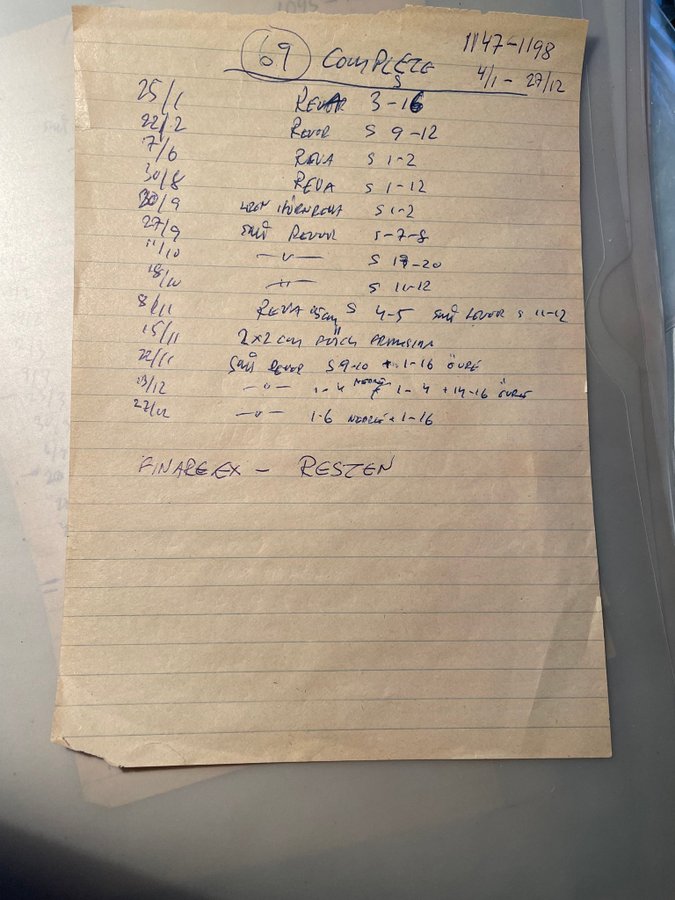 69 COMPLETE 1147-1198
S 4/1 - 27/12
25/1 REVOR 3-16
22/2 REVOR S 9-12
7/6 REVA S 1-2
30/8 REVA S 1-12
20/9 S 1-2
27/9 SMÅ REVOR S-7-8
11/10 —"— S 17-20
18/10 —"— S 11-12
8/11 REVA S 4-5 SMÅ REVOR S 11-12
15/11 2x2 cm
22/11 SMÅ REVOR S 9-10 + 1-16 ÖVRE
13/12 —"— 1-4 NEDRE + 1-4 + 14-16 ÖVRE
27/12 —"— 1-6 NEDRE + 1-16
FINARE EX - RESTEN